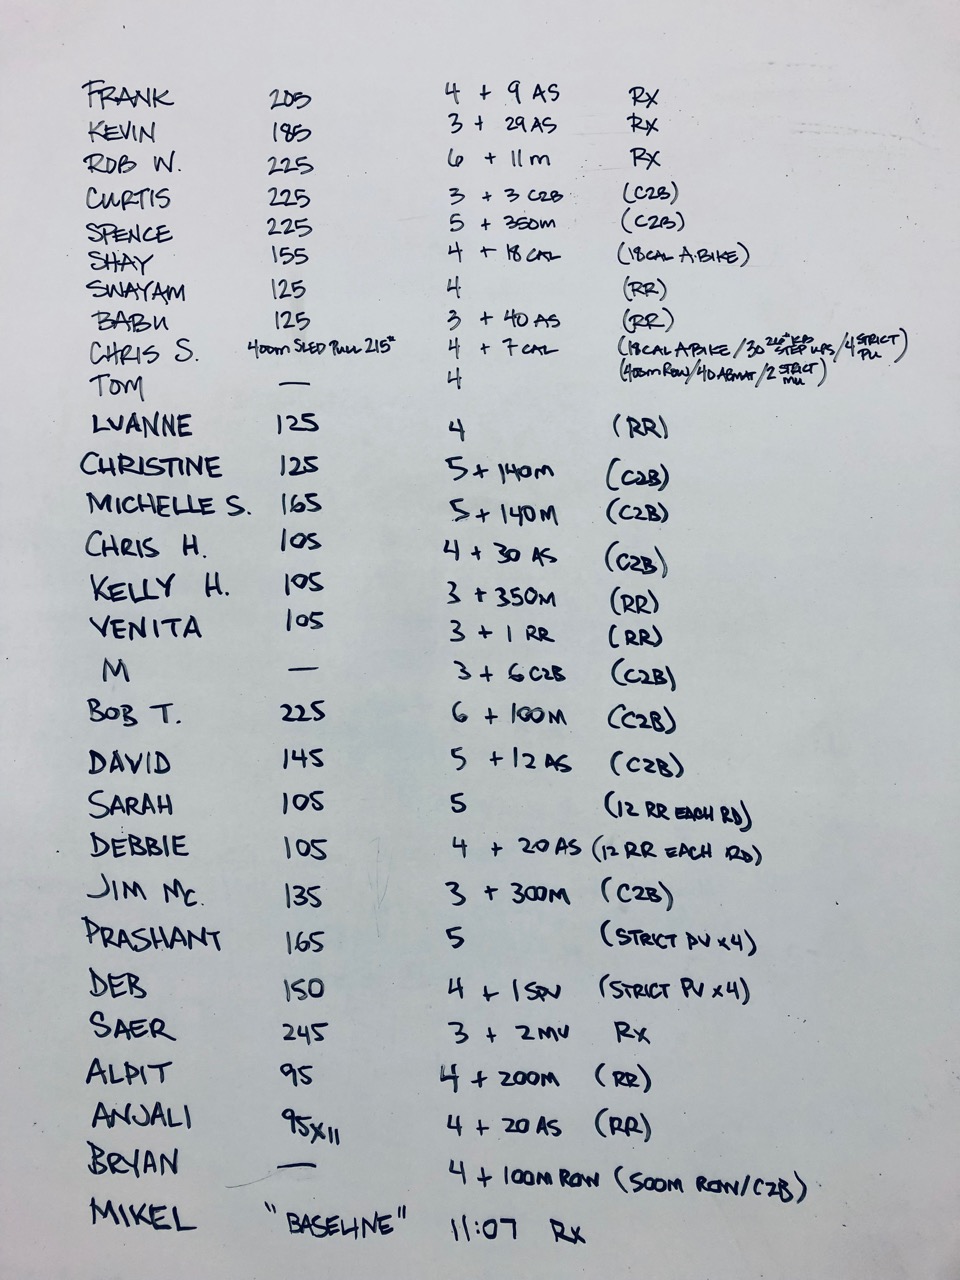 FRANK 205 4 + 9 AS RX
KEVIN 185 3 + 29 AS RX
ROB W. 225 6 + 11 M RX
CURTIS 225 3 + 3 C2B (C2B)
SPENCE 225 5 + 350M (C2B)
SHAY 155 4 + 18 CAL (18 CAL A.BIKE)
SWAYAM 125 4 (RR)
BABU 125 3 + 40 AS (RR)
CHRIS S. 400M SLED PULL 215# 4 + 7 CAL (18 CAL A BIKE / 30 STEP UPS / 4 STRICT PU)
TOM — 4 (400M ROW / 40 ABMAT / 2 STRICT MU)
LUANNE 125 4 (RR)
CHRISTINE 125 5 + 140M (C2B)
MICHELLE S. 165 5 + 140M (C2B)
CHRIS H. 105 4 + 30 AS (C2B)
KELLY H. 105 3 + 350M (RR)
VENITA 105 3 + 1 RR (RR)
M — 3 + 6 C2B (C2B)
BOB T. 225 6 + 100M (C2B)
DAVID 145 5 + 12 AS (C2B)
SARAH 105 5 (12 RR EACH RD)
DEBBIE 105 4 + 20 AS (12 RR EACH RD)
JIM MC. 135 3 + 300M (C2B)
PRASHANT 165 5 (STRICT PU x 4)
DEB 150 4 + 1 SPU (STRICT PU x 4)
SAER 245 3 + 2 MU RX
ALPIT 95 4 + 200M (RR)
ANJALI 95x11 4 + 20 AS (RR)
BRYAN — 4 + 100M ROW (500M ROW/C2B)
MIKEL "BASELINE" 11:07 RX